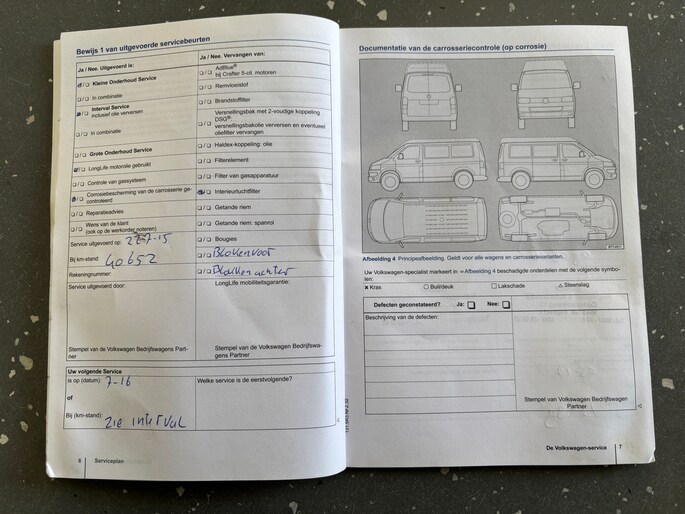 Bewijs 1 van uitgevoerde servicebeurten
Ja / Nee. Uitgevoerd is:
Kleine Onderhoud Service
In combinatie
Interval Service
inclusief olie verversen
In combinatie
Grote Onderhoud Service
LongLife motorolie gebruikt
Controle van gassysteem
Corrosiebescherming van de carrosserie ge-
controleerd
Reparatieadvies
Wens van de klant
(ook op de werkorder noteren)
Service uitgevoerd op: 27-7-15
Bij km-stand: 40652
Rekeningnummer:
Service uitgevoerd door:
Stempel van de Volkswagen Bedrijfswagens Part-
ner
Ja / Nee. Vervangen van:
AdBlue®
bij Crafter 5-cil. motoren
Remvloeistof
Brandstoffilter
Versnellingsbak met 2-voudige koppeling
DSG®:
versnellingsbakolie verversen en eventueel
oliefilter vervangen
Haldex-koppeling: olie
Filterelement
Filter van gasapparatuur
Interieurluchtfilter
Getande riem
Getande riem: spanrol
Bougies
Blokken voor
Blokken achter
LongLife mobiliteitsgarantie:
Stempel van de Volkswagen Bedrijfswa-
gens Partner
Uw volgende Service
is op (datum): 7-16
of
Bij (km-stand): zie interval
Welke service is de eerstvolgende?
6 Serviceplan
Documentatie van de carrosseriecontrole (op corrosie)
Afbeelding 4 Principeafbeelding. Geldt voor alle wagens en carrosserievarianten.
Uw Volkswagen-specialist markeert in ⇒ Afbeelding 4 beschadigde onderdelen met de volgende symbo-
len:
✖ Kras ○ Buil/deuk □ Lakschade △ Steenslag
Defecten geconstateerd? Ja: □ Nee: □
Beschrijving van de defecten:
Stempel van Volkswagen Bedrijfswagen
Partner
De Volkswagen-service 7